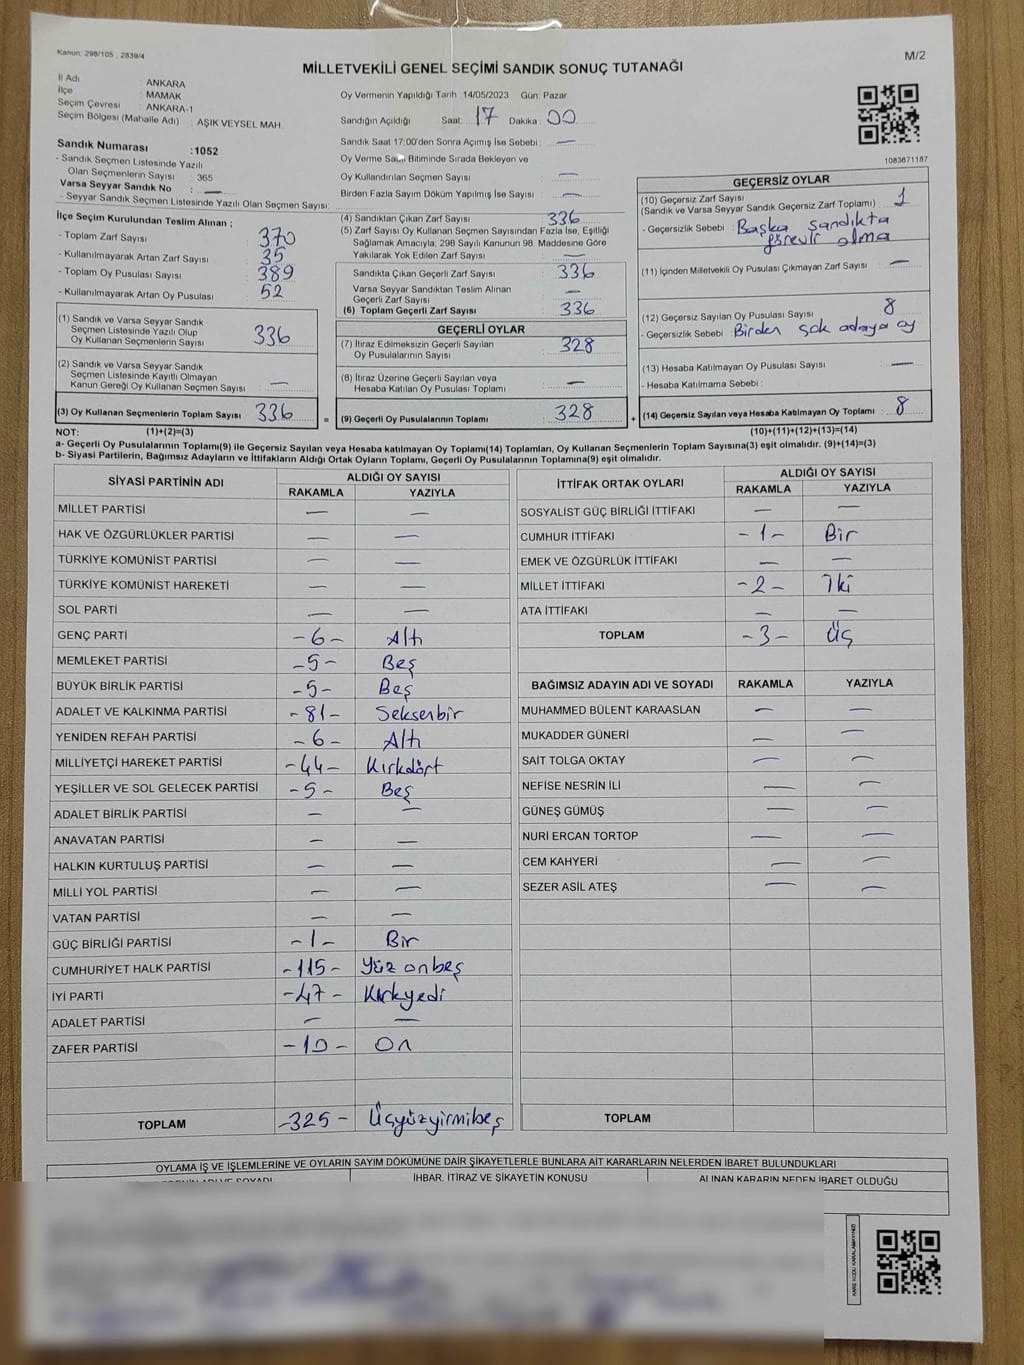 Kanun: 298/105 , 2839/4
M/2
MİLLETVEKİLİ GENEL SEÇİMİ SANDIK SONUÇ TUTANAĞI
İl Adı ANKARA
İlçe MAMAK
Seçim Çevresi ANKARA-1
Seçim Bölgesi (Mahalle Adı) : AŞIK VEYSEL MAH.
Sandık Numarası :1052
- Sandık Seçmen Listesinde Yazılı
Olan Seçmenlerin Sayısı : 365
Varsa Seyyar Sandık No : —
- Seyyar Sandık Seçmen Listesinde Yazılı Olan Seçmen Sayısı:
Oy Vermenin Yapıldığı Tarih 14/05/2023 Gün: Pazar
Sandığın Açıldığı Saat: 17 Dakika : 00
Sandık Saat 17:00'den Sonra Açımış İse Sebebi : —
Oy Verme Bitiminde Sırada Bekleyen ve
Oy Kullandırılan Seçmen Sayısı : —
Birden Fazla Sayım Döküm Yapılmış İse Sayısı : —
1083671187
İlçe Seçim Kurulundan Teslim Alınan ;
- Toplam Zarf Sayısı : 370
- Kullanılmayarak Artan Zarf Sayısı : 35
- Toplam Oy Pusulası Sayısı : 389
- Kullanılmayarak Artan Oy Pusulası : 52
(1) Sandık ve Varsa Seyyar Sandık
Seçmen Listesinde Yazılı Olup
Oy Kullanan Seçmenlerin Sayısı : 336
(2) Sandık ve Varsa Seyyar Sandık
Seçmen Listesinde Kayıtlı Olmayan
Kanun Gereği Oy Kullanan Seçmen Sayısı : —
(3) Oy Kullanan Seçmenlerin Toplam Sayısı : 336
(4) Sandıktan Çıkan Zarf Sayısı : 336
(5) Zarf Sayısı Oy Kullanan Seçmen Sayısından Fazla İse, Eşitliği
Sağlamak Amacıyla, 298 Sayılı Kanunun 98. Maddesine Göre
Yakılarak Yok Edilen Zarf Sayısı : —
Sandıkta Çıkan Geçerli Zarf Sayısı : 336
Varsa Seyyar Sandıktan Teslim Alınan
Geçerli Zarf Sayısı : —
(6) Toplam Geçerli Zarf Sayısı : 336
GEÇERLİ OYLAR
(7) İtiraz Edilmeksizin Geçerli Sayılan
Oy Pusulalarının Sayısı : 328
(8) İtiraz Üzerine Geçerli Sayılan veya
Hesaba Katılan Oy Pusulası Toplamı : —
= (9) Geçerli Oy Pusulalarının Toplamı : 328
GEÇERSİZ OYLAR
(10) Geçersiz Zarf Sayısı : 1
(Sandık ve Varsa Seyyar Sandık Geçersiz Zarf Toplamı)
- Geçersizlik Sebebi : Başka sandıkta
görevli olma
(11) İçinden Milletvekili Oy Pusulası Çıkmayan Zarf Sayısı : —
(12) Geçersiz Sayılan Oy Pusulası Sayısı : 8
- Geçersizlik Sebebi : Birden çok adaya oy
(13) Hesaba Katılmayan Oy Pusulası Sayısı : —
- Hesaba Katılmama Sebebi :
+ (14) Geçersiz Sayılan veya Hesaba Katılmayan Oy Toplamı : 8
NOT: (1)+(2)=(3) (10)+(11)+(12)+(13)=(14)
a- Geçerli Oy Pusulalarının Toplamı(9) ile Geçersiz Sayılan veya Hesaba katılmayan Oy Toplamı(14) Toplamları, Oy Kullanan Seçmenlerin Toplam Sayısına(3) eşit olmalıdır. (9)+(14)=(3)
b- Siyasi Partilerin, Bağımsız Adayların ve İttifakların Aldığı Ortak Oyların Toplamı, Geçerli Oy Pusulalarının Toplamına(9) eşit olmalıdır.
SİYASİ PARTİNİN ADI ALDIĞI OY SAYISI
RAKAMLA YAZIYLA
MİLLET PARTİSİ — —
HAK VE ÖZGÜRLÜKLER PARTİSİ — —
TÜRKİYE KOMÜNİST PARTİSİ — —
TÜRKİYE KOMÜNİST HAREKETİ — —
SOL PARTİ — —
GENÇ PARTİ -6- Altı
MEMLEKET PARTİSİ -5- Beş
BÜYÜK BİRLİK PARTİSİ -5- Beş
ADALET VE KALKINMA PARTİSİ -81- Seksenbir
YENİDEN REFAH PARTİSİ -6- Altı
MİLLİYETÇİ HAREKET PARTİSİ -44- Kırkdört
YEŞİLLER VE SOL GELECEK PARTİSİ -5- Beş
ADALET BİRLİK PARTİSİ — —
ANAVATAN PARTİSİ — —
HALKIN KURTULUŞ PARTİSİ — —
MİLLİ YOL PARTİSİ — —
VATAN PARTİSİ — —
GÜÇ BİRLİĞİ PARTİSİ -1- Bir
CUMHURİYET HALK PARTİSİ -115- Yüz onbeş
İYİ PARTİ -47- Kırkyedi
ADALET PARTİSİ — —
ZAFER PARTİSİ -10- On
TOPLAM -325- Üçyüzyirmibeş
İTTİFAK ORTAK OYLARI ALDIĞI OY SAYISI
RAKAMLA YAZIYLA
SOSYALİST GÜÇ BİRLİĞİ İTTİFAKI — —
CUMHUR İTTİFAKI -1- Bir
EMEK VE ÖZGÜRLÜK İTTİFAKI — —
MİLLET İTTİFAKI -2- İki
ATA İTTİFAKI — —
TOPLAM -3- Üç
BAĞIMSIZ ADAYIN ADI VE SOYADI RAKAMLA YAZIYLA
MUHAMMED BÜLENT KARAASLAN — —
MUKADDER GÜNERİ — —
SAİT TOLGA OKTAY — —
NEFİSE NESRİN İLİ — —
GÜNEŞ GÜMÜŞ — —
NURİ ERCAN TORTOP — —
CEM KAHYERİ — —
SEZER ASİL ATEŞ — —
TOPLAM
OYLAMA İŞ VE İŞLEMLERİNE VE OYLARIN SAYIM DÖKÜMÜNE DAİR ŞİKAYETLERLE BUNLARA AİT KARARLARIN NELERDEN İBARET BULUNDUKLARI
ADI VE SOYADI İHBAR, İTİRAZ VE ŞİKAYETİN KONUSU ALINAN KARARIN NEDEN İBARET OLDUĞU
KARE KODU KARALAMAYINIZ!